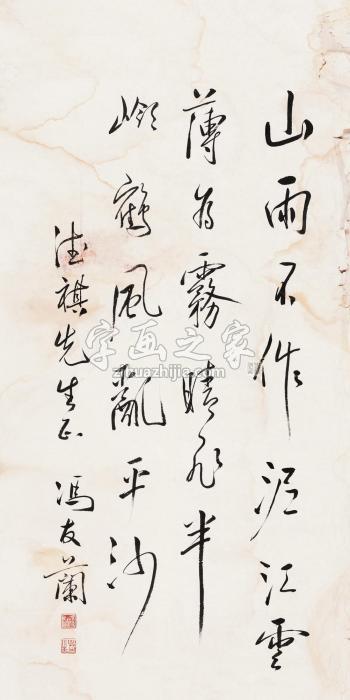 山雨不作泥江雲
薄為霧晴飛半
嶺鶴風亂平沙
祺先生正
馮友蘭
字画之家
zihuazhijia.com